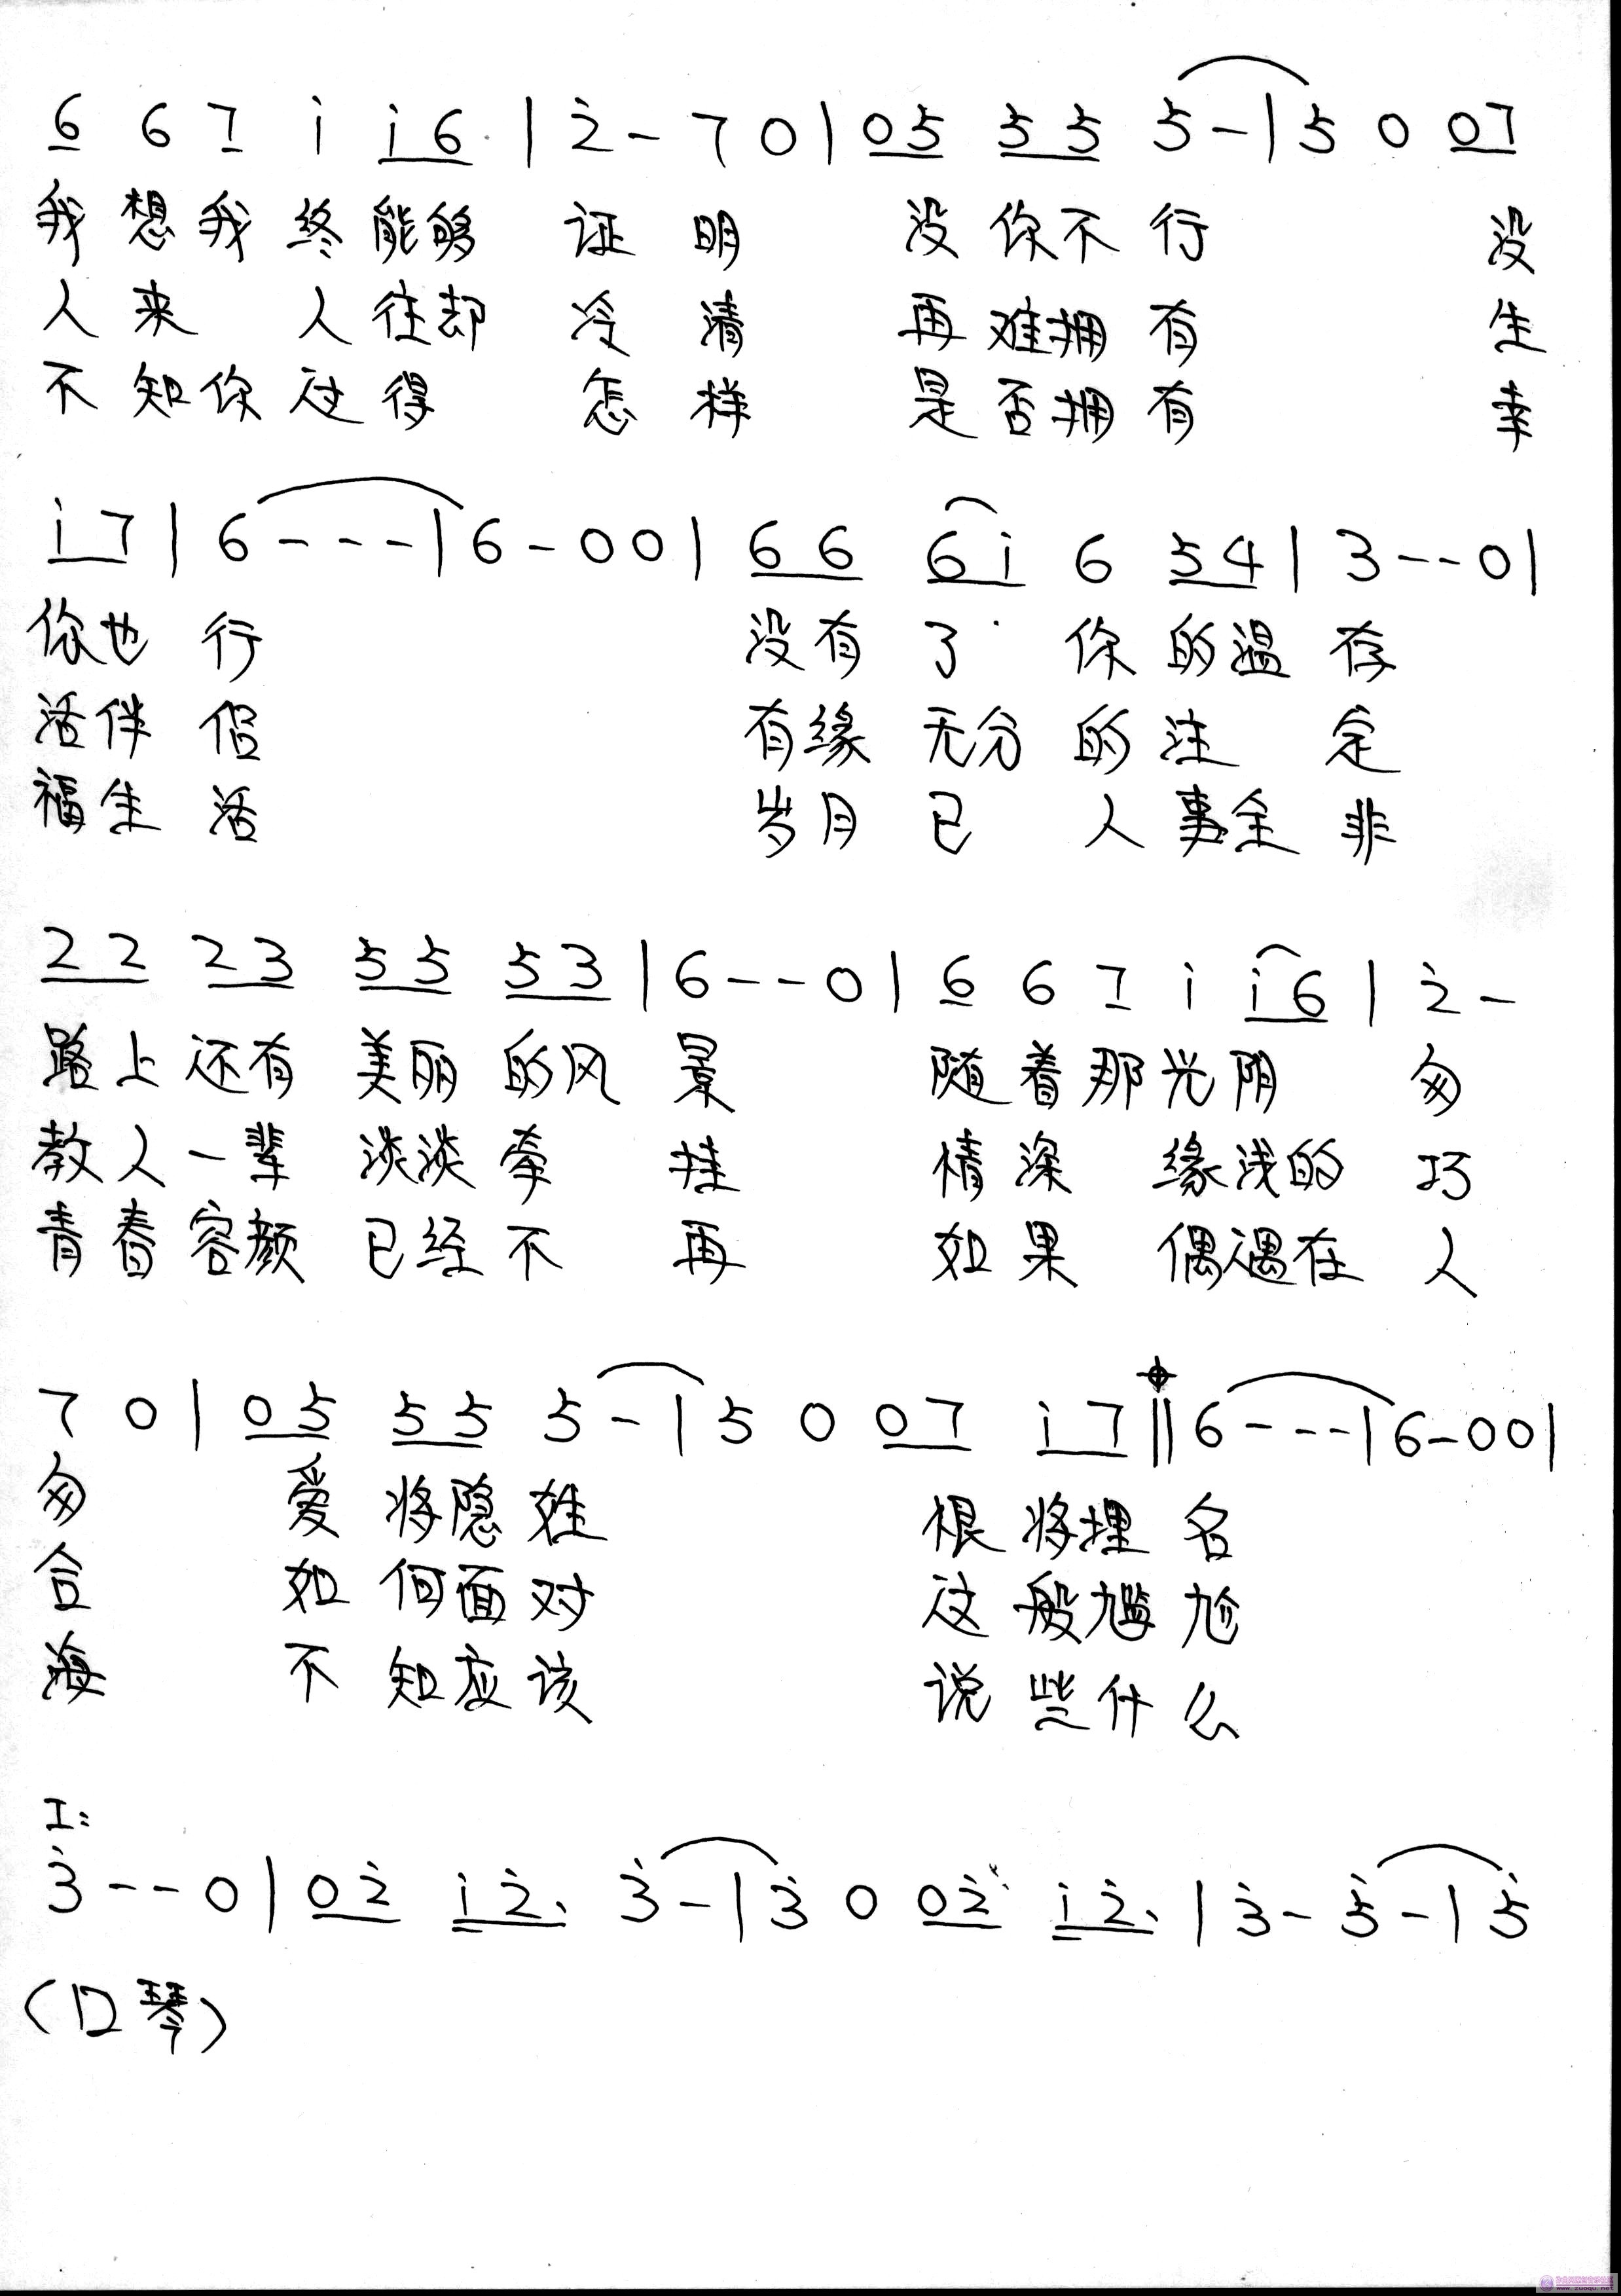 6 6 7 i i 6 | 2 - 7 0 | 0 5 5 5 5 - | 5 0 0 7
我想我终能够 证明 没你不行 没
人来 人往却 冷清 再难拥有 生
不知你过得 怎样 是否拥有 幸
i 7 | 6 - - - | 6 - 0 0 | 6 6 6 i 6 5 4 | 3 - - 0 |
你也行 没有了 你的温存
活伴侣 有缘无分的注 定
福生活 岁月已 人事全非
2 2 2 3 5 5 5 3 | 6 - - 0 | 6 6 7 i i 6 | 2 -
路上还有美丽的风 景 随着那光阴 匆
教人一辈 淡淡牵 挂 情深 缘浅的 巧
青春容颜 已经不 再 如果 偶遇在 人
7 0 | 0 5 5 5 5 - | 5 0 0 7 i 7 || 6 - - - | 6 - 0 0 |
匆 爱将隐姓 根将埋名
合 如何面对 这般尴尬
海 不知应该 说些什么
I:
3 - - 0 | 0 2 i 2. 3 - | 3 0 0 2 i 2. | 3 - 5 - | 5
(口琴)
www.zuoqu.net